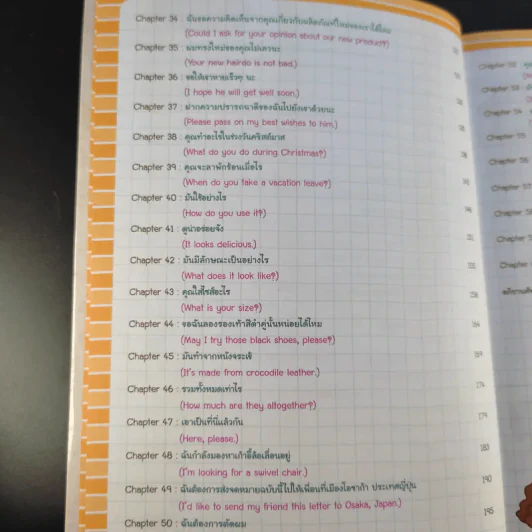 Chapter 34 : ฉันขอความคิดเห็นจากคุณเกี่ยวกับผลิตภัณฑ์ใหม่ของเราได้ไหม
(Could I ask for your opinion about our new product?)
Chapter 35 : ผมทรงใหม่ของคุณไม่เลวนะ
(Your new hairdo is not bad.)
Chapter 36 : ขอให้เขาหายเร็วๆ นะ
(I hope he will get well soon.)
Chapter 37 : ฝากความปรารถนาดีของฉันไปยังเขาด้วยนะ
(Please pass on my best wishes to him.)
Chapter 38 : คุณทำอะไรในช่วงวันคริสต์มาส
(What do you do during Christmas?)
Chapter 39 : คุณจะลาพักร้อนเมื่อไร
(When do you take a vacation leave?)
Chapter 40 : มันใช้อย่างไร
(How do you use it?)
Chapter 41 : ดูน่าอร่อยจัง
(It looks delicious.)
Chapter 42 : มันมีลักษณะเป็นอย่างไร
(What does it look like?)
Chapter 43 : คุณใส่ไซส์อะไร
(What is your size?)
Chapter 44 : ขอฉันลองรองเท้าสีดำคู่นั้นหน่อยได้ไหม
(May I try those black shoes, please?)
Chapter 45 : มันทำจากหนังจระเข้
(It's made from crocodile leather.)
Chapter 46 : รวมทั้งหมดเท่าไร
174
(How much are they altogether?)
Chapter 47 : เอาเป็นที่นี่แล้วกัน
179
(Here, please.)
Chapter 48 : ฉันกำลังมองหาเก้าอี้ล้อเลื่อนอยู่
183
(I'm looking for a swivel chair.)
Chapter 49 : ฉันต้องการส่งจดหมายฉบับนี้ไปให้เพื่อนที่เมืองโอซาก้า ประเทศญี่ปุ่น
190
(I'd like to send my friend this letter to Osaka, Japan.)
195
Chapter 50 : ฉันต้องการตัดผม